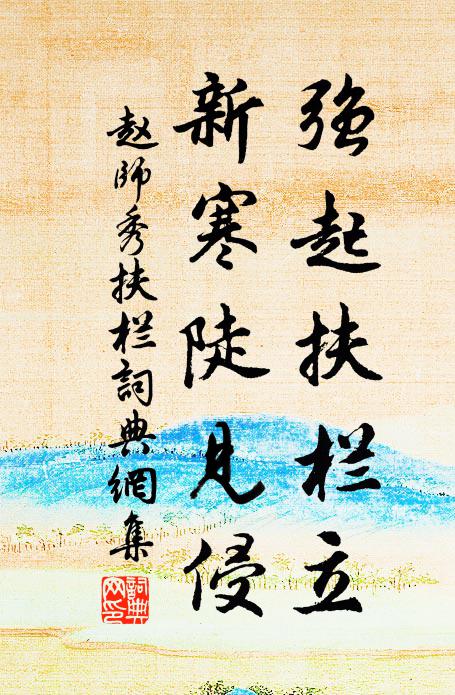 强起扶栏立
新寒陡见侵
赵師秀扶栏詞典網集